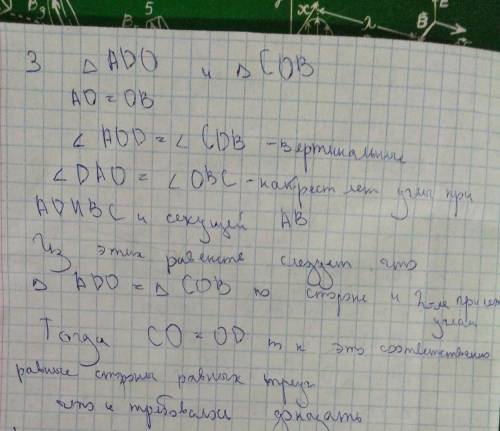 5
3 △ ADO и △ COB
AO = OB
∠ AOD = ∠ COB - вертикальные
∠ DAO = ∠ OBC - накрест леж углы при
AD ∥ BC и секущей AB
Из этих равенств следует, что
△ ADO = △ COB по стороне и 2-м прилеж
углам
Тогда CO = OD т к это соответственно
равные стороны равных треуг
что и требовалось доказать